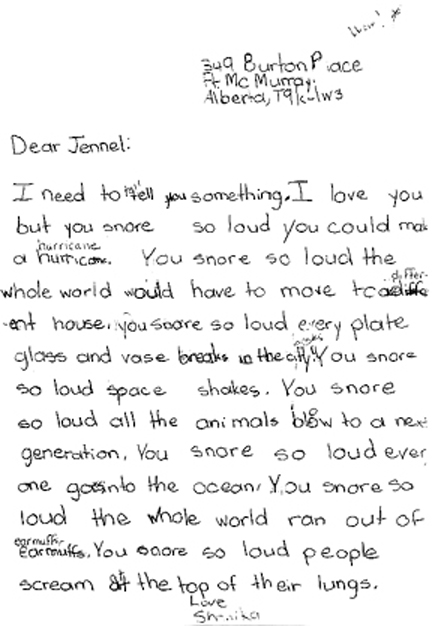 Wow!
349 Burton Place
Ft Mc Murray,
Alberta, T9K-1W3
Dear Jennel:
I need to tell you something. I love you
but you snore so loud you could mak
hurricane
a hurricane. You snore so loud the
differ-
whole world would have to move to a
-ent house. you snore so loud every plate
glass and vase breaks in the city. You snore
so loud space shakes. You snore
so loud all the animals blow to a new
generation. You snore so loud ever
one goes into the ocean. You snore so
loud the whole world ran out of
earmuffs
Earmuffs. You snore so loud people
scream at the top of their lungs.
Love